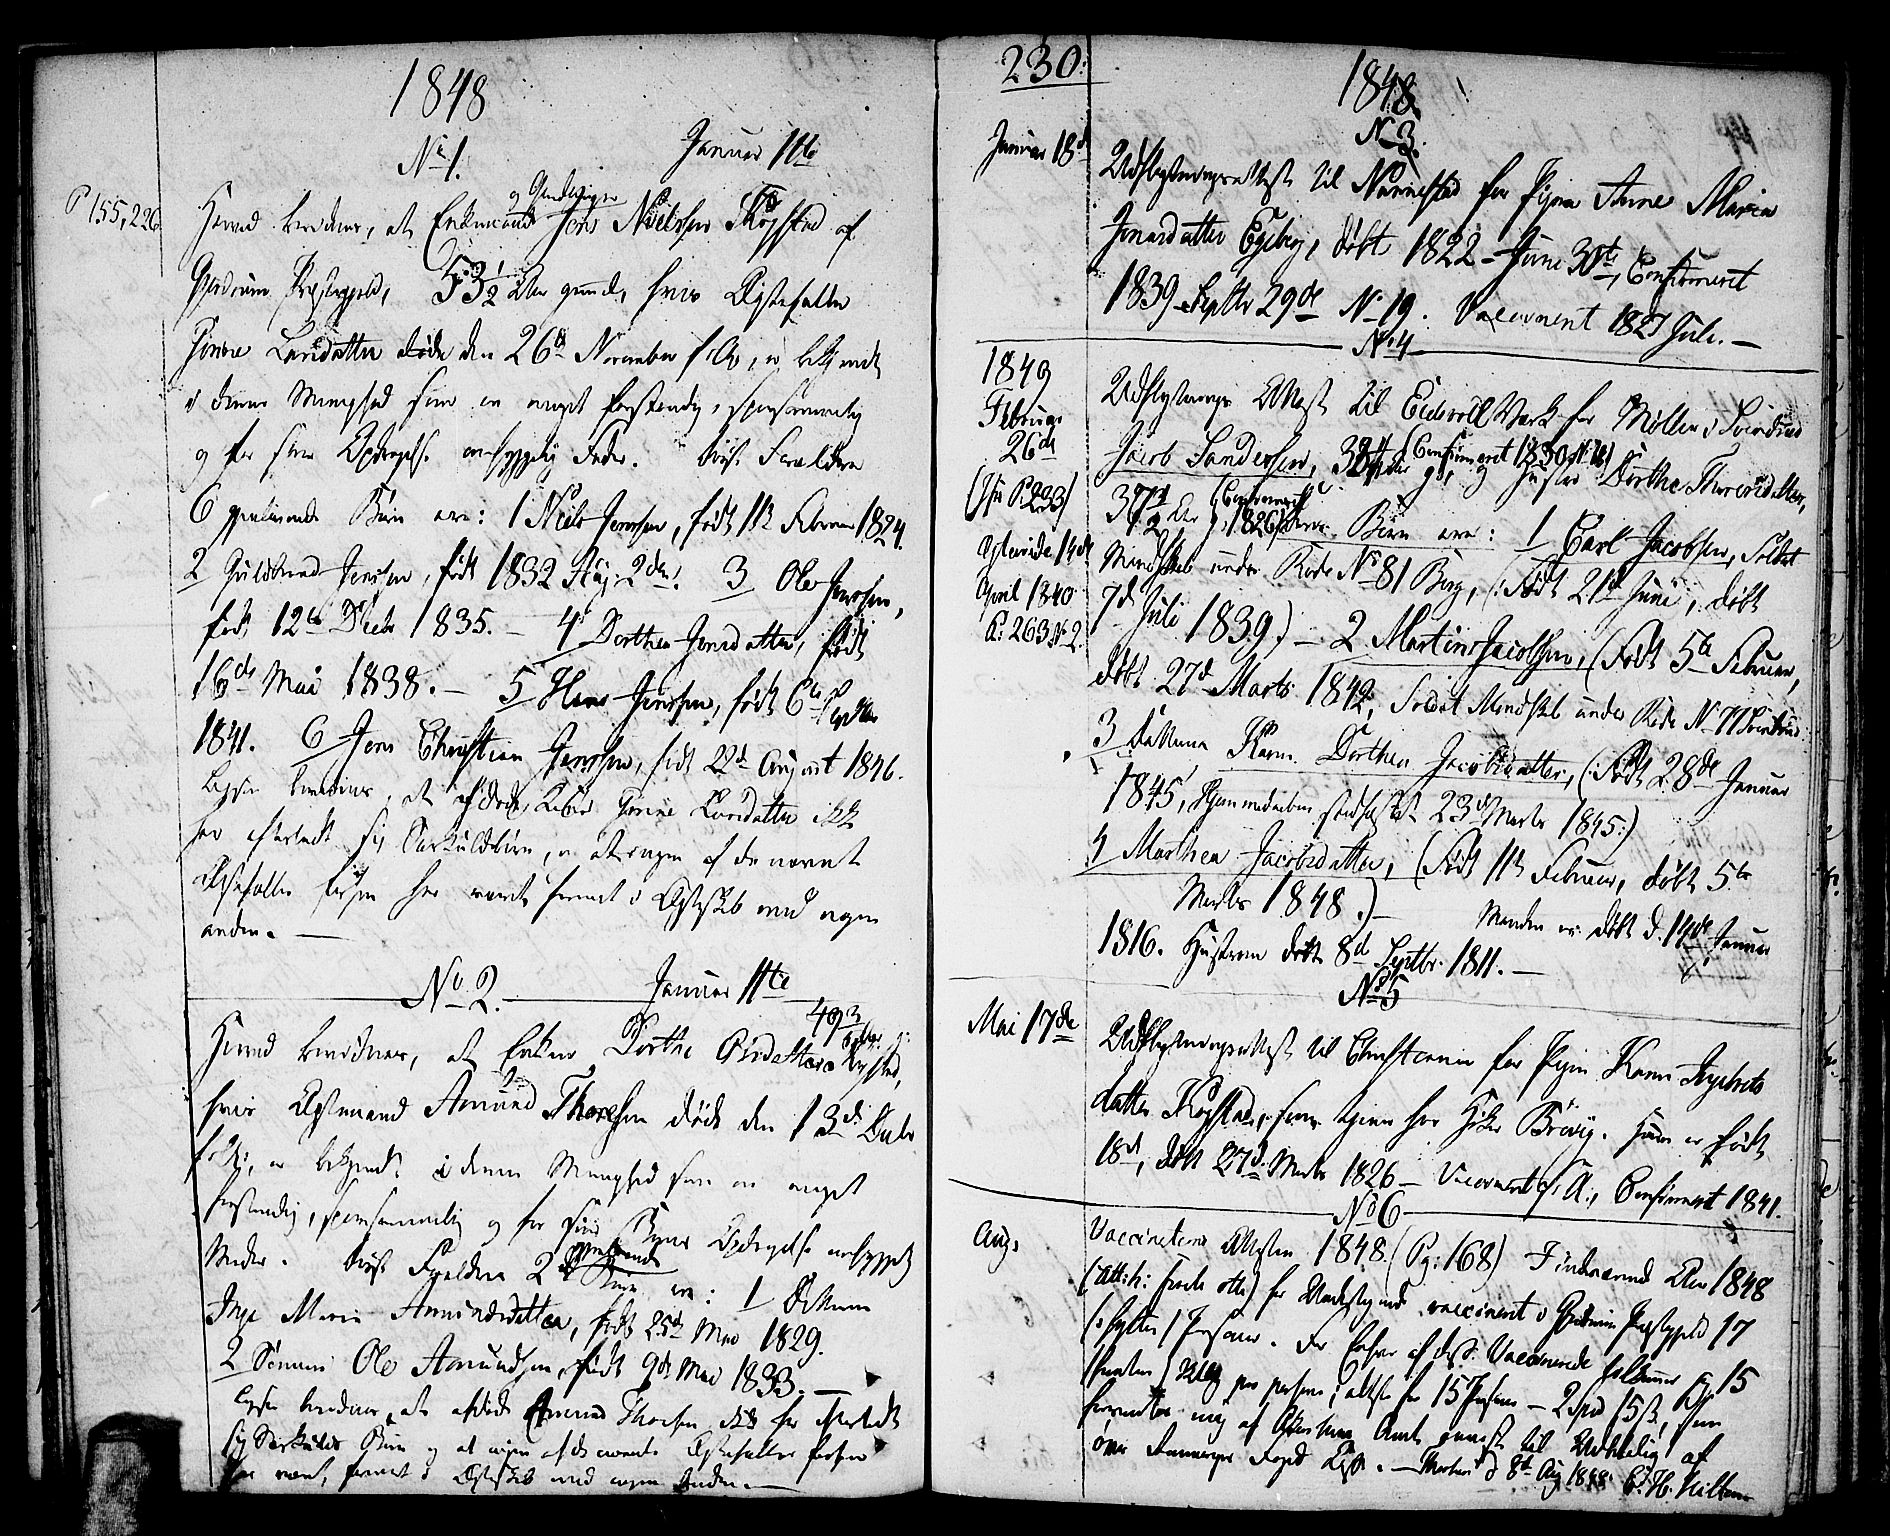 1848
No 1. Januar 11te
P 155, 226
og Gaardeier
Herved bevidnes, at Enkemand Jens Nielssen Røgstad af
Gjerdrum Præstegjeld, 53½ Aar gammel, hvis Ægtefælle
Larsdatter døde den 26de November f: A:, er bekjendt
i denne Menighed som en meget forstandig, sparsommelig
og for sine Opdragelse omhyggelig Fader. Disse Forældres
6 gjenlevende Børn ere: 1 Niels Jenssen, født 11te Februar 1824.
2 Guldbrand Jenssen, født 1832 Aug: 2den. 3 Ole Jenssen,
født 12te Decbr 1835. – 4 Dorthea Jensdatter, født
16de Mai 1838. – 5 Hans Jenssen, født 6te Septbr
1841. 6 Jens Christian Jenssen, født 22de August 1846.
bevidnes, at afdøde Larsdatter ikke
har efterladt sig Særkuldbørn, og at ingen af de nævnte
Ægtefæller forhen har været forenet i Ægteskab med nogen
anden. –
No 2. Januar 11te
49¾ Aar g:
Herved bevidnes, at Enken Dorthe Røgstad,
hvis Ægtemand Amund Thoresen døde den 13de Decbr
f: A:, er bekjendt i denne Menighed som en meget
forstandig, sparsommelig og for sine Børns Opdragelse omhyggelig
Moder. Disse Forældres 2 gjenlevende
Børn ere: 1 Datteren
Inge Marie Amundsdatter, født 25de Mai 1829.
2 Sønnen Ole Amundsen, født 9de Mai 1833. –
bevidnes, at afdøde Amund Thoresen ikke har efterladt
sig Særkulds Børn og at ingen af de nævnte Ægtefæller forhen
har været forenet i Ægteskab med nogen Anden. –
230.
1848
No 3.
Januar 18de
Udflytningsattest til Nannestad for Pigen Anne Maria
Jensdatter Egeberg, døbt 1822 – Juni 30te, Confirmeret
1839 Septbr 29de No 19. Vaccineret 1827 Juli. –
No 4
1849
Februar
26de
(See P. 233)
14de
April 1840
P: 263 No 2.
Udflytnings Attest til Eidsvold Værk for Mølleren
Jacob Sandersen, (Confirmeret 1830 No 16) og Hustru Dorthe Thoresdatter,
37½ Aar g: (Confirmeret 1826) Børn ere: 1 Carl Jacobsen, Soldat
Mandskab under Rode No 81 Berg, (: Født 21de Juni, døbt
7de Juli 1839.) – 2 Martin Jacobsen, (Født 5te Februar,
døbt 27de Marts 1842, Soldat Mandskab under Rode No 77
3 Datteren Karen Dorthea Jacobsdatter, (: Født 28de Januar
1845, Hjemmedaaben stadfæstet 23de Marts 1845:)
4 Marthea Jacobsdatter, (Født 11te Februar, døbt 5te
Marts 1848.) – Manden er døbt d. 14de Januar
1816. Hustruen døbt 8de Septbr: 1811. –
No 5
Mai 17de
Udflytningsattest til Christiania for Pigen Karen Ingebrets
datter Røgstad, som tjener hos Brevig. Hun er født
18de, døbt 27de Marts 1826 – Vaccineret s: A:, Confirmeret 1841.
No 6
Aug.
Vaccinations Attester 1848. (Pg: 168) I indeværende Aar 1848
(Atten hundrede otte) har Undertegnede vaccineret i Gjerdrum Præstegjeld 17
(: sytten) Personer. For af disse Vaccinerede tilkommer jeg 15
(femten) per person, altsaa for 15 Personer – 2 Spd 15 ß, som
forventes mig af Akershus Amt anvist til Udbetaling af
Fogd – d 8de Aug 1848: C. H.